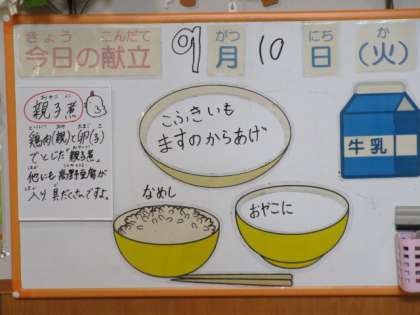 きょう こんだて がつ にち か
今日の献立 9月10日(火)
おや こ に
親子煮
鶏肉(親)と卵(子)
でとじた"親子煮"
他にも高野豆腐が
入り具だくさんですよ。
こふきいも
ますのからあげ
牛乳
なめし
おやこに